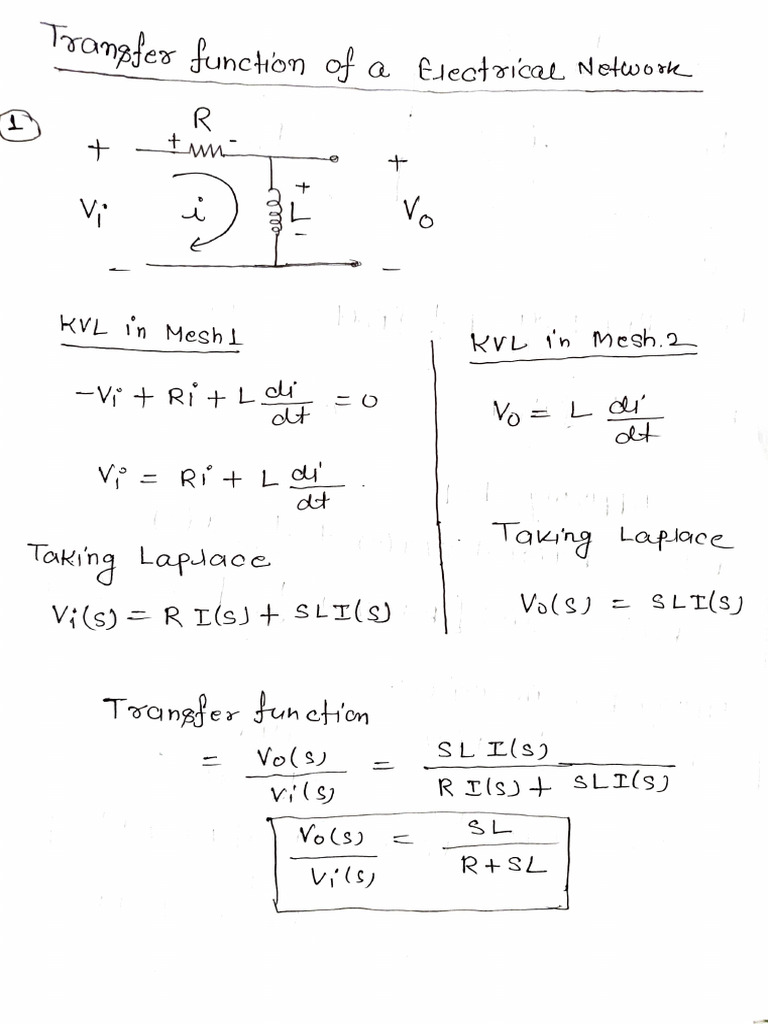 Transfer function of a Electrical Network
1
R
+ + - +
Vi i + L Vo
- - -
KVL in Mesh 1
-Vi + Ri + L di/dt = 0
Vi = Ri + L di/dt .
Taking Laplace
Vi(s) = R I(s) + SLI(s)
KVL in Mesh.2
Vo = L di/dt
Taking Laplace
Vo(s) = SLI(s)
Transfer function
= Vo(s)/Vi(s) = SL I(s)/R I(s) + SLI(s)
Vo(s)/Vi(s) = SL/R + SL